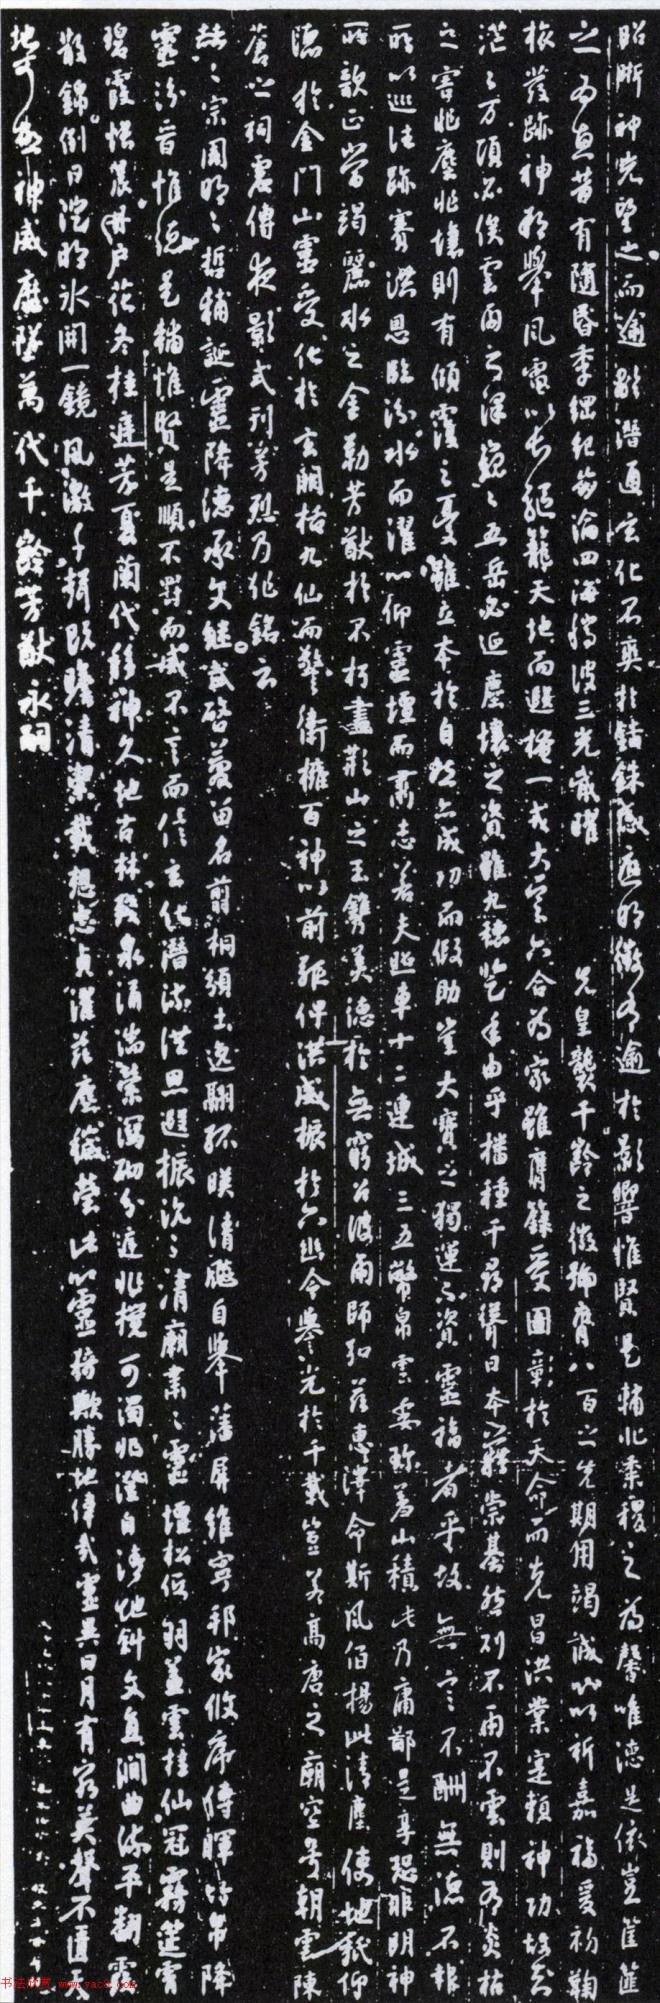 昭晰神光望之而逾顯潛通玄化不爽於錙銖感應明徵有逾於影響惟賢是輔非黍稷之為馨唯德是依豈筐篚
之為惠昔有隨昏季綱紀崩淪四海騰波三光戢曜先皇襲千齡之徽號膺八百之先期用竭誠心以祈嘉福爰初鞠
旅發跡神邦舉風電以長驅籠天地而遐掩一戎大定六合為家雖膺籙受圖彰於天命而克昌洪業寔賴神功故知
茫々萬頃必俟雲雨之澤巍々五岳必延塵壤之資雖九穗登年由乎播種千尋聳日本藉崇基然則不雨不雲則有炎枯
之害非塵非壤則有傾覆之憂雖立本於自然亦成功而假助豈大寶之獨運不資靈福者乎故無言不酬無德不報
所以巡往跡賽洪恩臨汾水而濯心仰靈壇而肅志若夫照車十二連城三五幣帛雲委珍羞山積此乃庸鄙是享恐非明神
所歆正當竭麗水之金勒芳猷於不朽盡荊山之玉鐫美德於無窮召彼雨師弘茲惠澤命斯風伯揚此清塵使地祇仰
德於金門山靈受化於玄闕括九仙而警衛擁百神以前驅俾洪威振於六幽令譽光於千載豈若高唐之廟空號朝雲陳
倉之祠虛傳夜影式刊芳烈乃作銘云
赫々宗周明々哲輔誕靈降德承文繼武啓慶留名翦桐頒土逸翮孤映清飈自舉藩屏維寧邦家攸序傳暉竹帛降
靈汾晉惟德是輔惟賢是順不罰而威不言而信玄化潛流洪恩遐振沉々清廟肅々靈壇松低羽蓋雲挂仙冠霧筵霄
碧霞帳晨丹戶花冬桂庭芳夏蘭代移神久地古林殘泉涌湍縈瀉砌分庭非攪可濁非澄自清地斜文直澗曲流平翻霞
散錦倒日澄明冰開一鏡風激千聲既瞻清潔載想忠貞濯茲塵穢瑩此心靈猗歟勝地偉哉靈異日月有窮英聲不匱天
地可極神威靡墜萬代千齡芳猷永嗣
书法欣赏 www.yac8.com